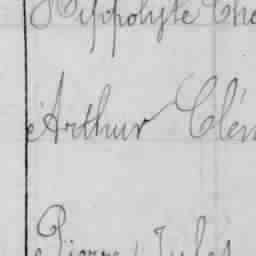 Hippolyte Che
Arthur Clém
Pierre Jules